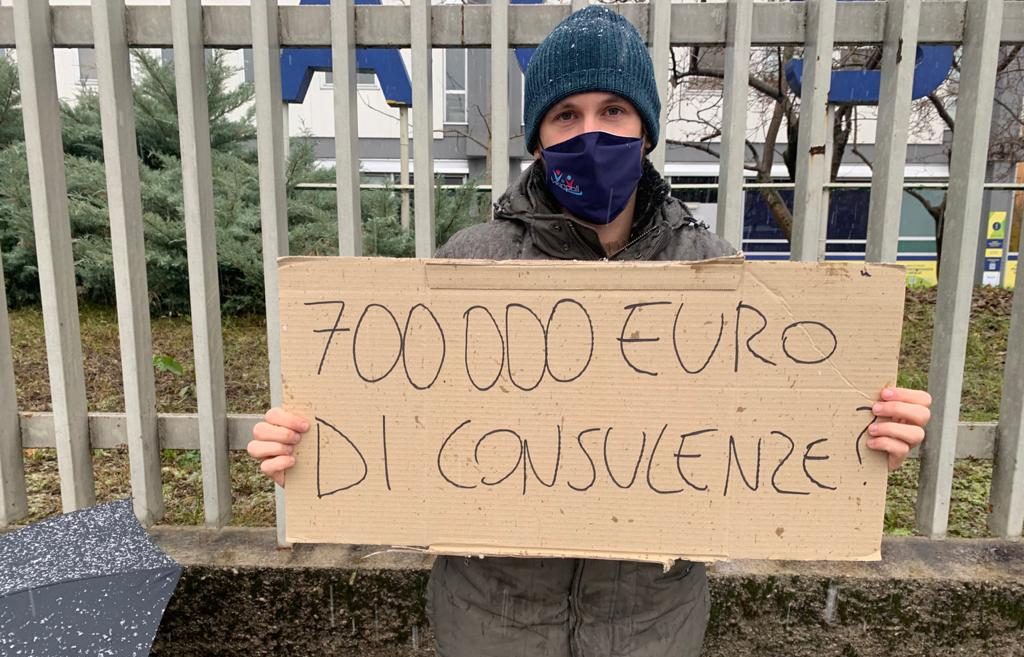 700.000 EURO
DI CONSULENZE?